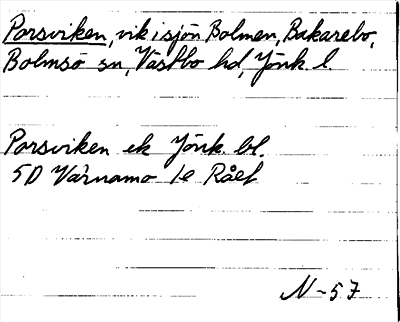 Porsviken, vik i sjön Bolmen, Bakarebo,
Bolmsö sn, Västbo hd, Jönk l.
Porsviken ek Jönk. bl.
5D Värnamo 1e Råef
N-57